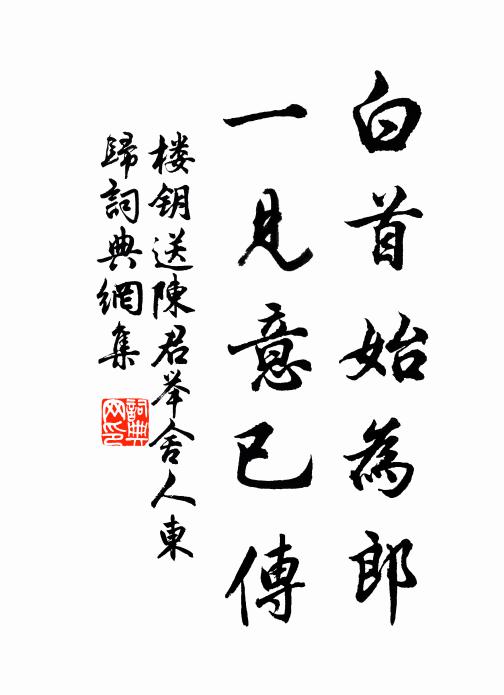 白首始為郎
一見意已傳
楼钥送陳君举舍人東
歸詞典網集
詞典
网印